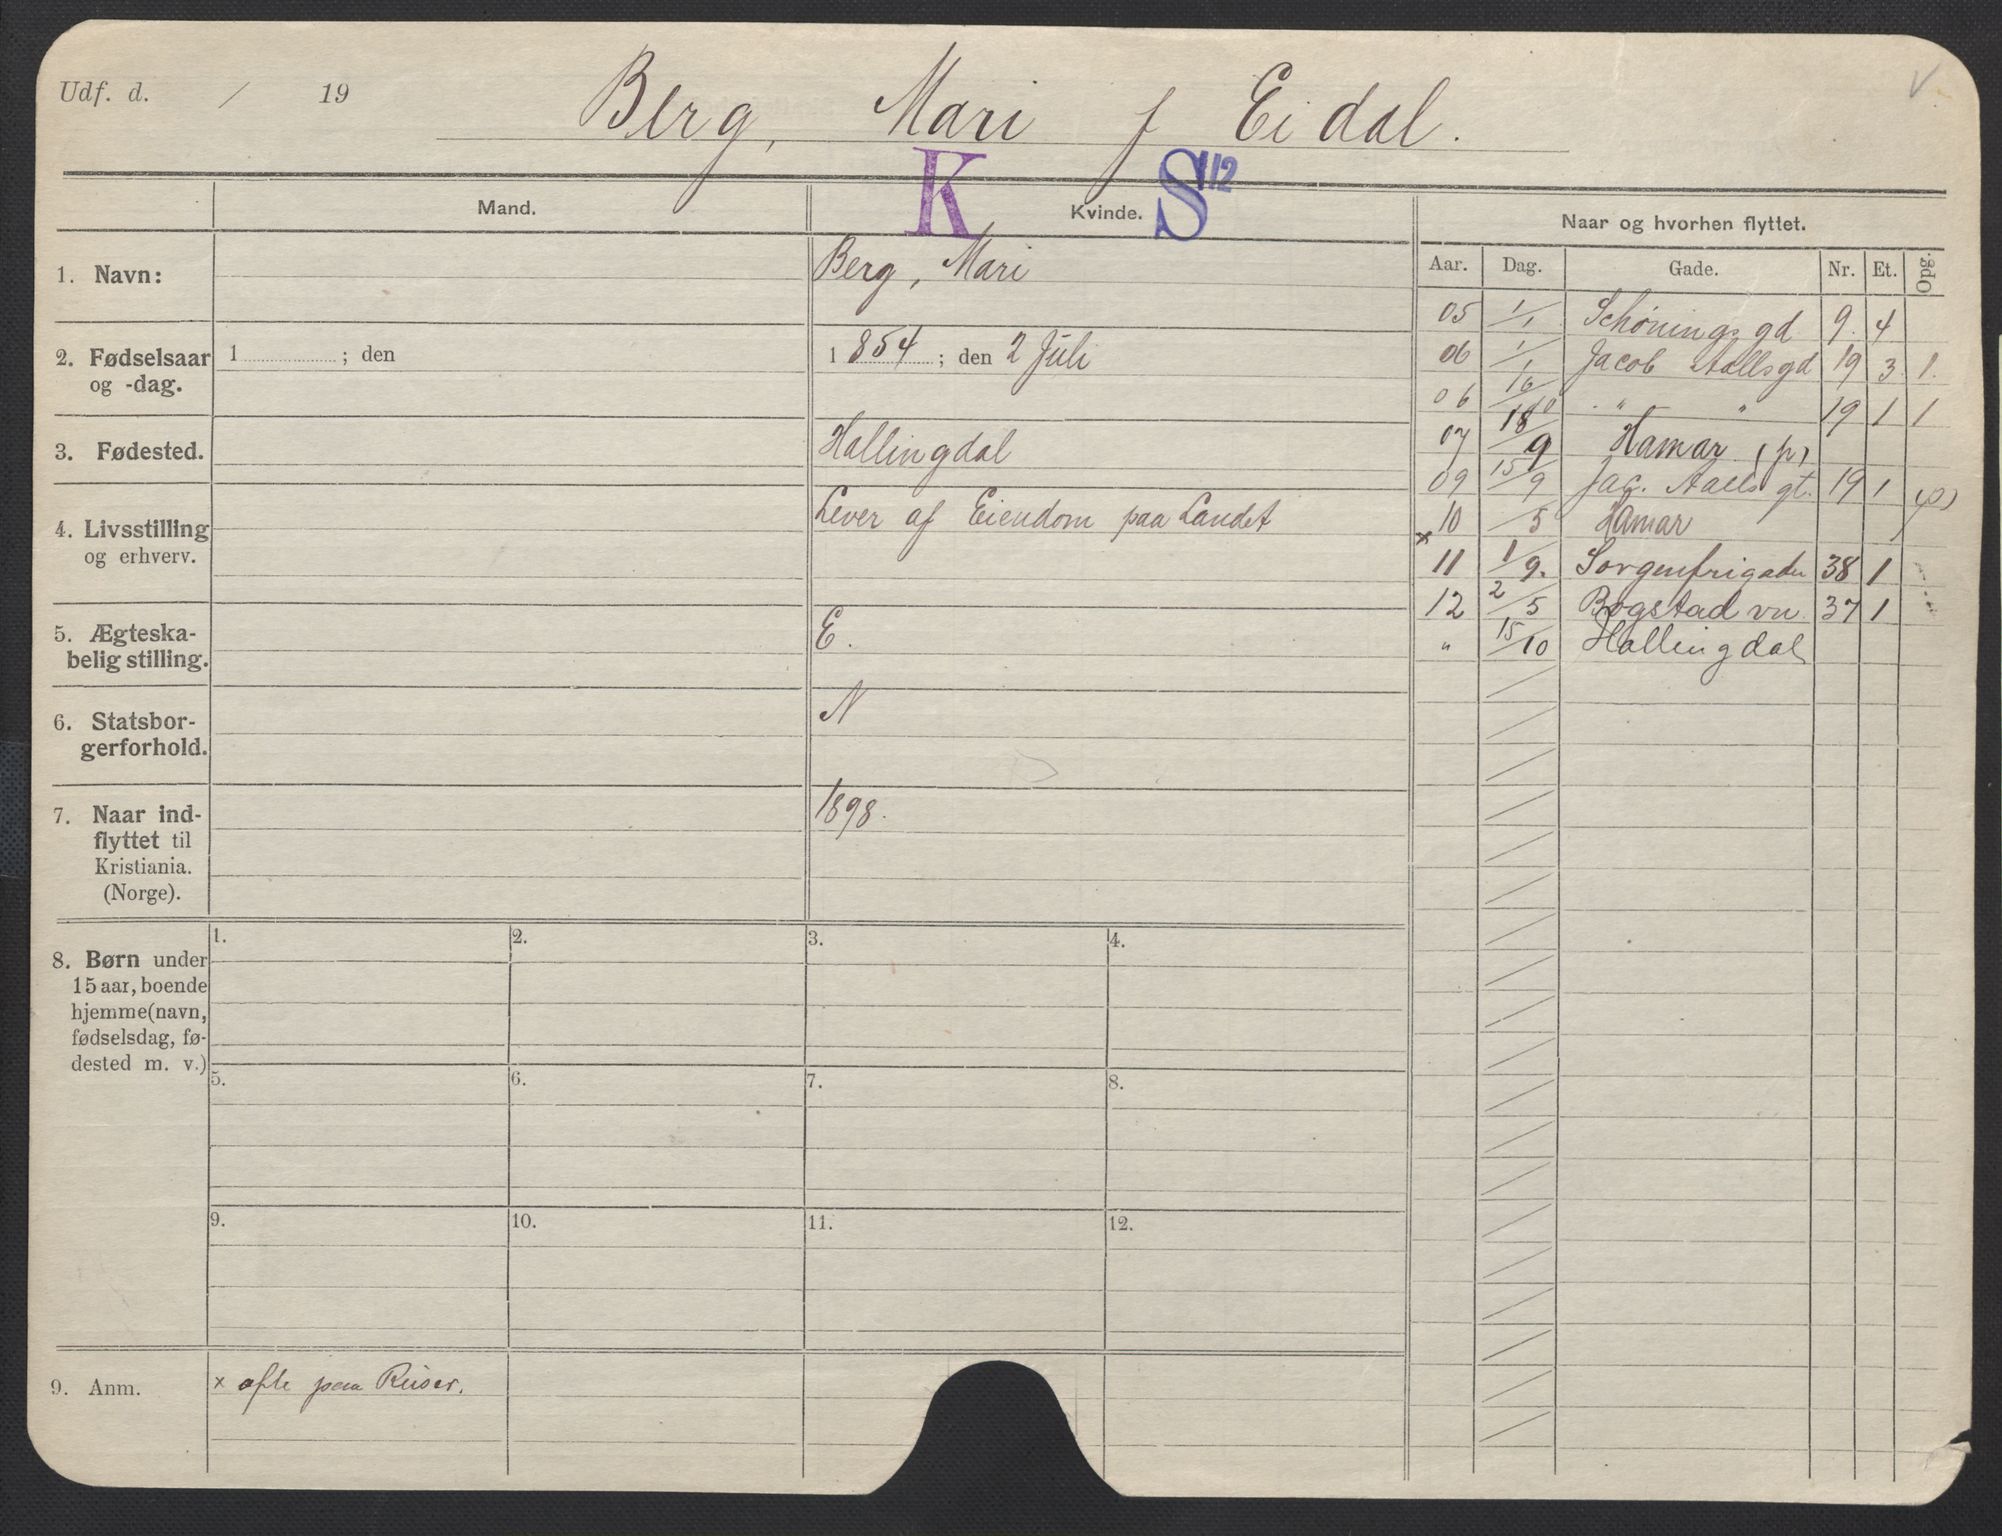 Udf. d. / 19
Berg, Mari f Eidal.
V.
K S 112
Mand.
Kvinde.
Naar og hvorhen flyttet.
Aar. Dag. Gade. Nr. Et. Opg.
1. Navn:
Berg, Mari
2. Fødselsaar
og -dag.
1 ; den
1854 ; den 2 Juli
3. Fødested.
Hallingdal
4. Livsstilling
og erhverv.
Lever af Eiendom paa Landet
5. Ægteska-
belig stilling.
E.
6. Statsbor-
gerforhold.
N
7. Naar ind-
flyttet til
Kristiania.
(Norge).
1898.
05 1/1 Schøningsgd 9. 4
06 1/1 Jacob Aallsgd 19 3 1.
06 16/10 " " 19 1 1
07 18/9 Hamar (p)
09 15/9 Jac. Aalls gt. 19 1 (p)
x 10 /5 Hamar
11 1/9. Sorgenfrigaden 38 1
12 2/5 Bogstadvn 37 1
" 15/10 Hallingdal
8. Børn under
15 aar, boende
hjemme (navn,
fødselsdag, fø-
dested m. v.)
1. 2. 3. 4.
5. 6. 7. 8.
9. 10. 11. 12.
9. Anm.
x ofte paa Reiser.